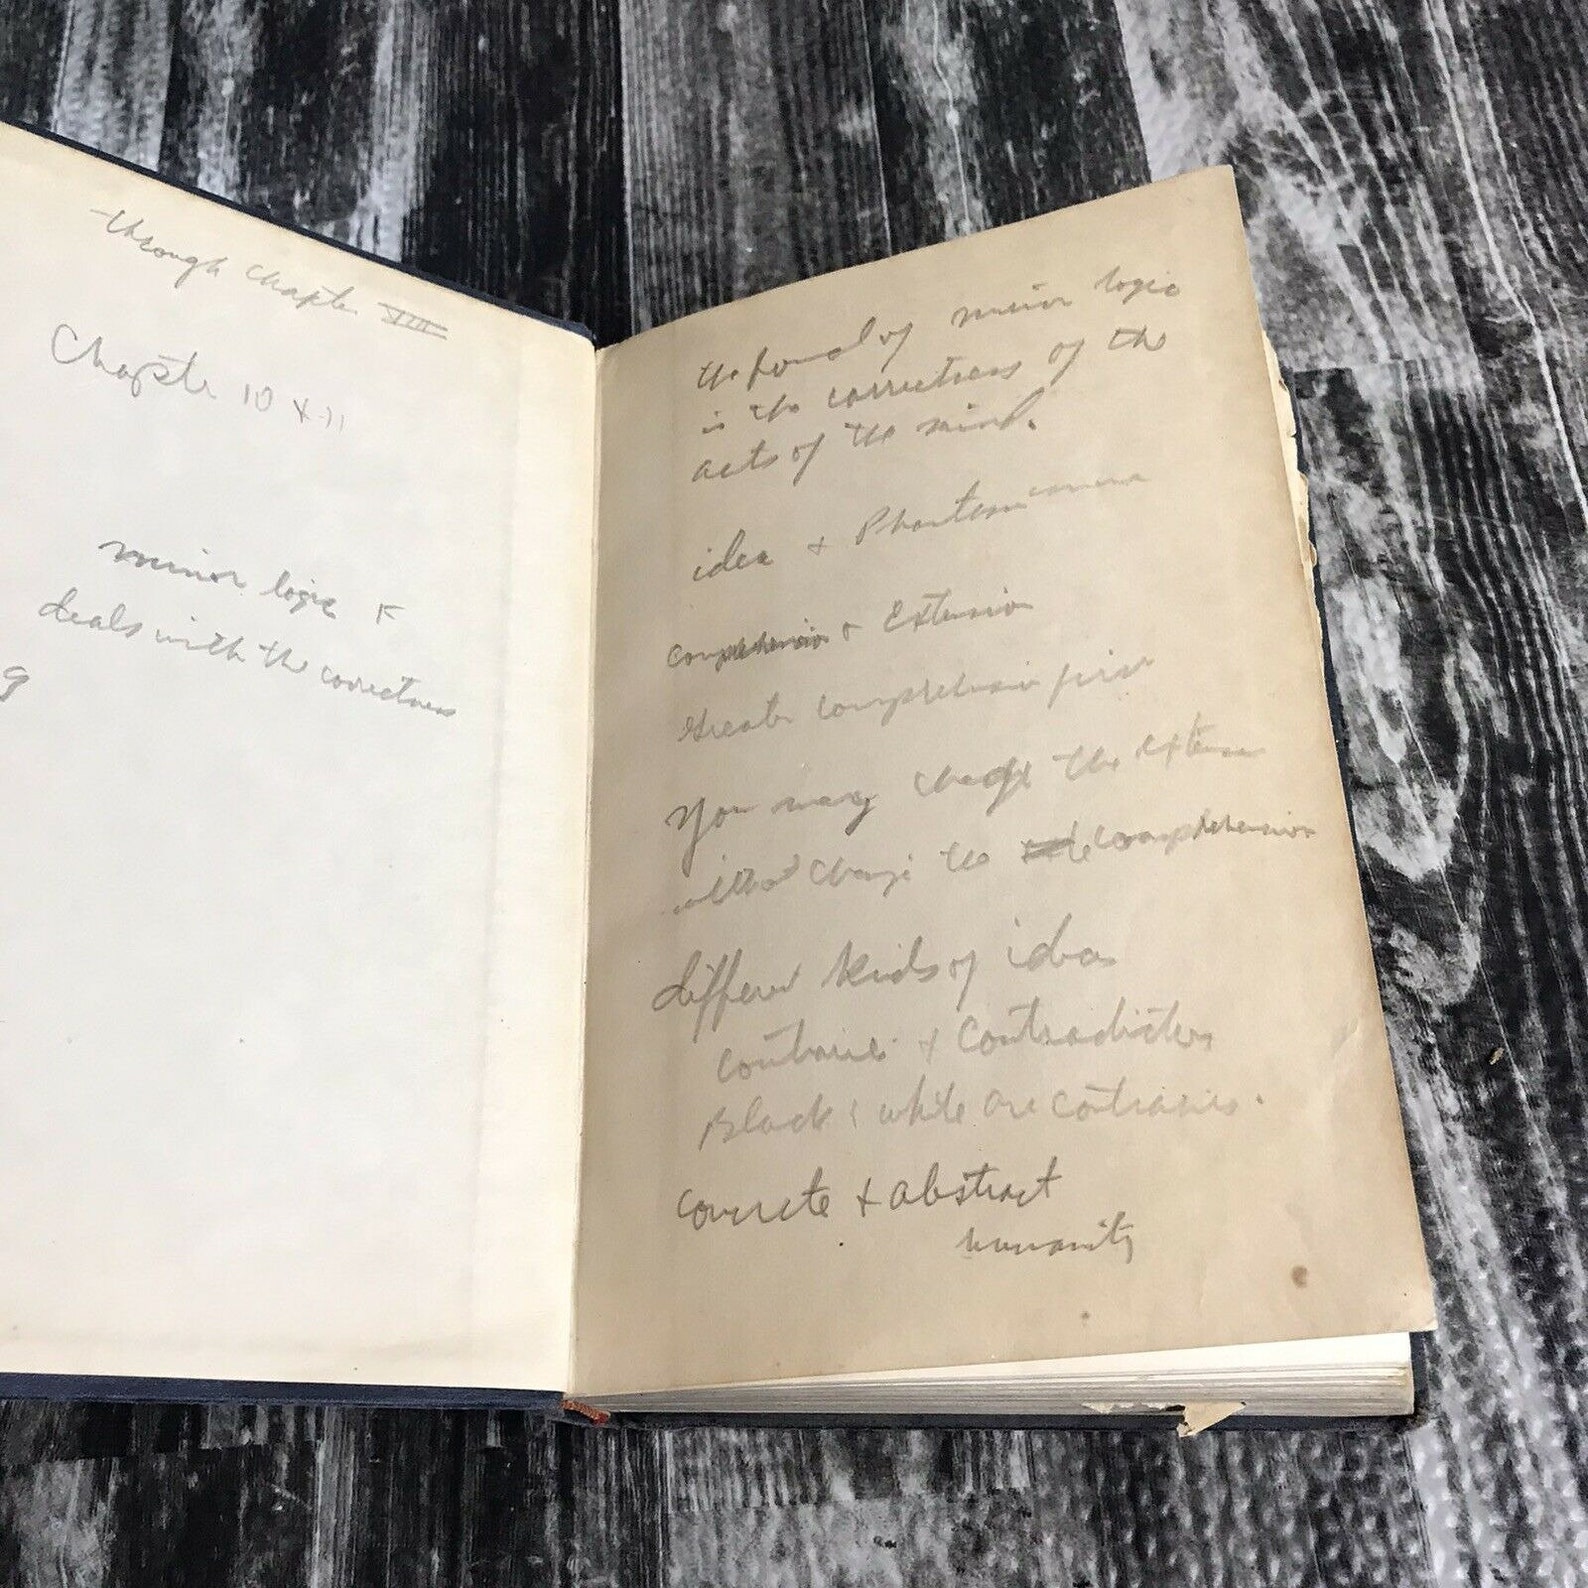 through Chapter VIII
Chapter 10 + 11
minor logic
deals with the correctness
9
the formal of minor logic
is the correctness of the
acts of the mind.
idea + Phantasm
comprehension + Extension
Greater comprehension first
You may change the extension
without change the comprehension
different kinds of ideas
contraries + Contradictory
Black & white are contraries.
concrete + abstract
humanity